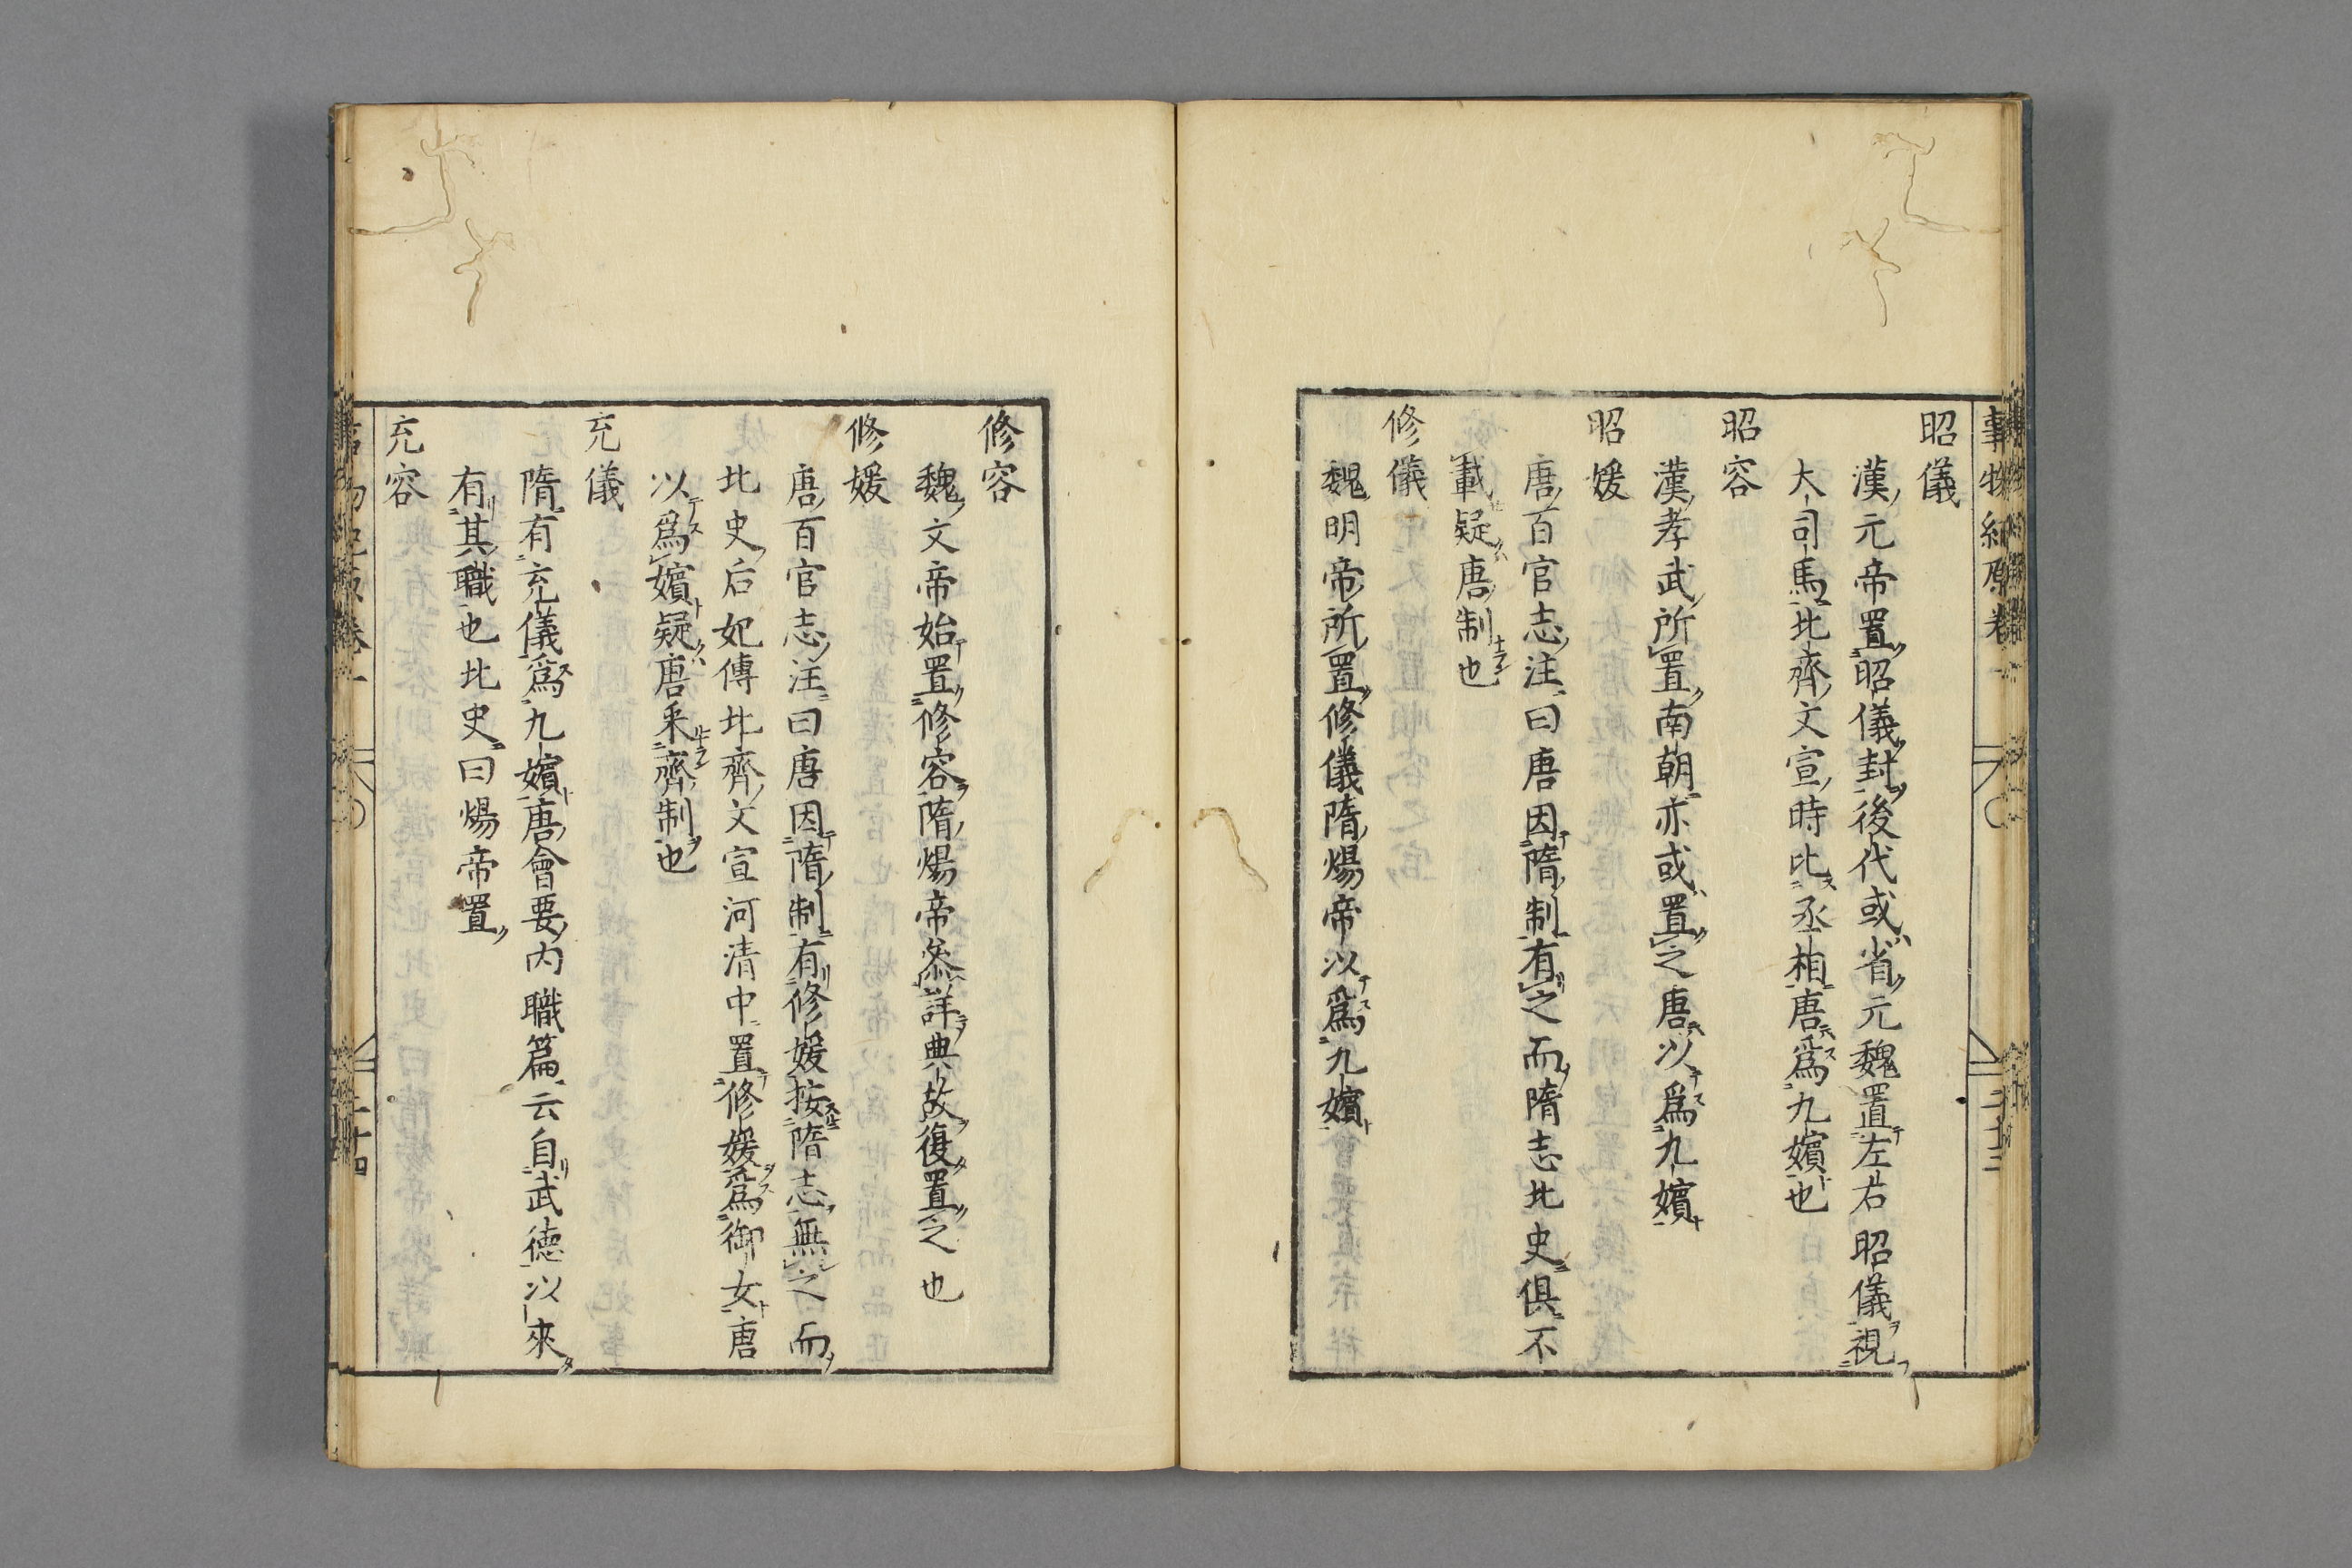 事物紀原卷一
昭儀
漢元帝置昭儀封後代或省元魏置左右昭儀視
大司馬北齊文宣時比丞相唐爲九嬪也
昭容
漢孝武所置南朝亦或置之唐以爲九嬪
昭媛
唐百官志注曰唐因隋制有之而隋志北史俱不
載疑唐制也
修儀
魏明帝所置修儀隋煬帝以爲九嬪
二十三
修容
魏文帝始置修容隋煬帝叅詳典故復置之也
修媛
唐百官志注曰唐因隋制有修媛按隋志無之而
北史后妃傳北齊文宣河清中置修媛爲御女唐
以爲嬪疑唐采齊制也
充儀
隋有充儀爲九嬪唐會要内職篇云自武德以來
有其職也北史曰煬帝置
充容
二十四